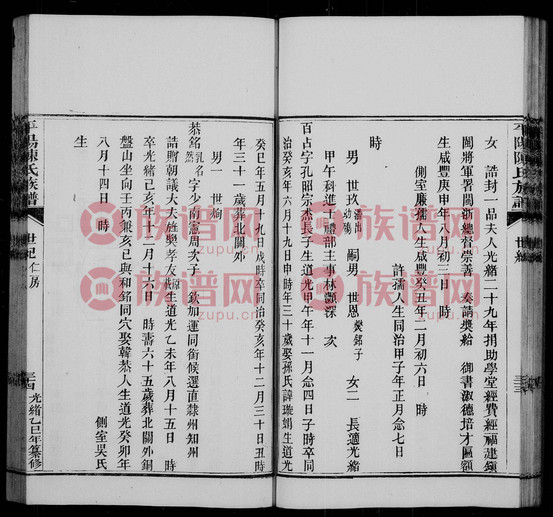 平陽陳氏族譜
世紀
女 誥封一品夫人光緒二十九年捐助學堂經費經福建
閩將軍署閩浙總督崇善 奏請獎給 御書淑德培才匾額
生咸豐庚申年八月初三日 時
側室廉孺人生咸豐癸丑年二月初六日 時
許孺人生同治甲子年正月念七日
時
男 世玖 嗣男 世恩 女二 長適光緒
甲午科進士禮部主事林灝深 次
百占字孔昭宗杰長子生道光甲午年十一月念四日子時卒同
治癸亥年六月十九日申時年三十歲娶孫氏諱璇娟生道光
癸巳年五月十九日戌時卒同治癸亥年十二月三十日丑時
年三十一歲葬北關外
男一 世絢
恭銘 乳名 字少南憲周次子 欽加運同銜候選直隸州知州
誥贈朝議大夫旌獎孝友 生道光乙未年八月十五日 時
卒光緒己亥年十二月十六日 時壽六十五歲葬北關外銅
盤山坐向壬丙兼亥巳與和銘同穴娶韓恭人生道光癸卯年
八月十四日 時 側室吳氏
生
平陽陳氏族譜
世紀 仁房
光緒乙巳年纂修
族谱网